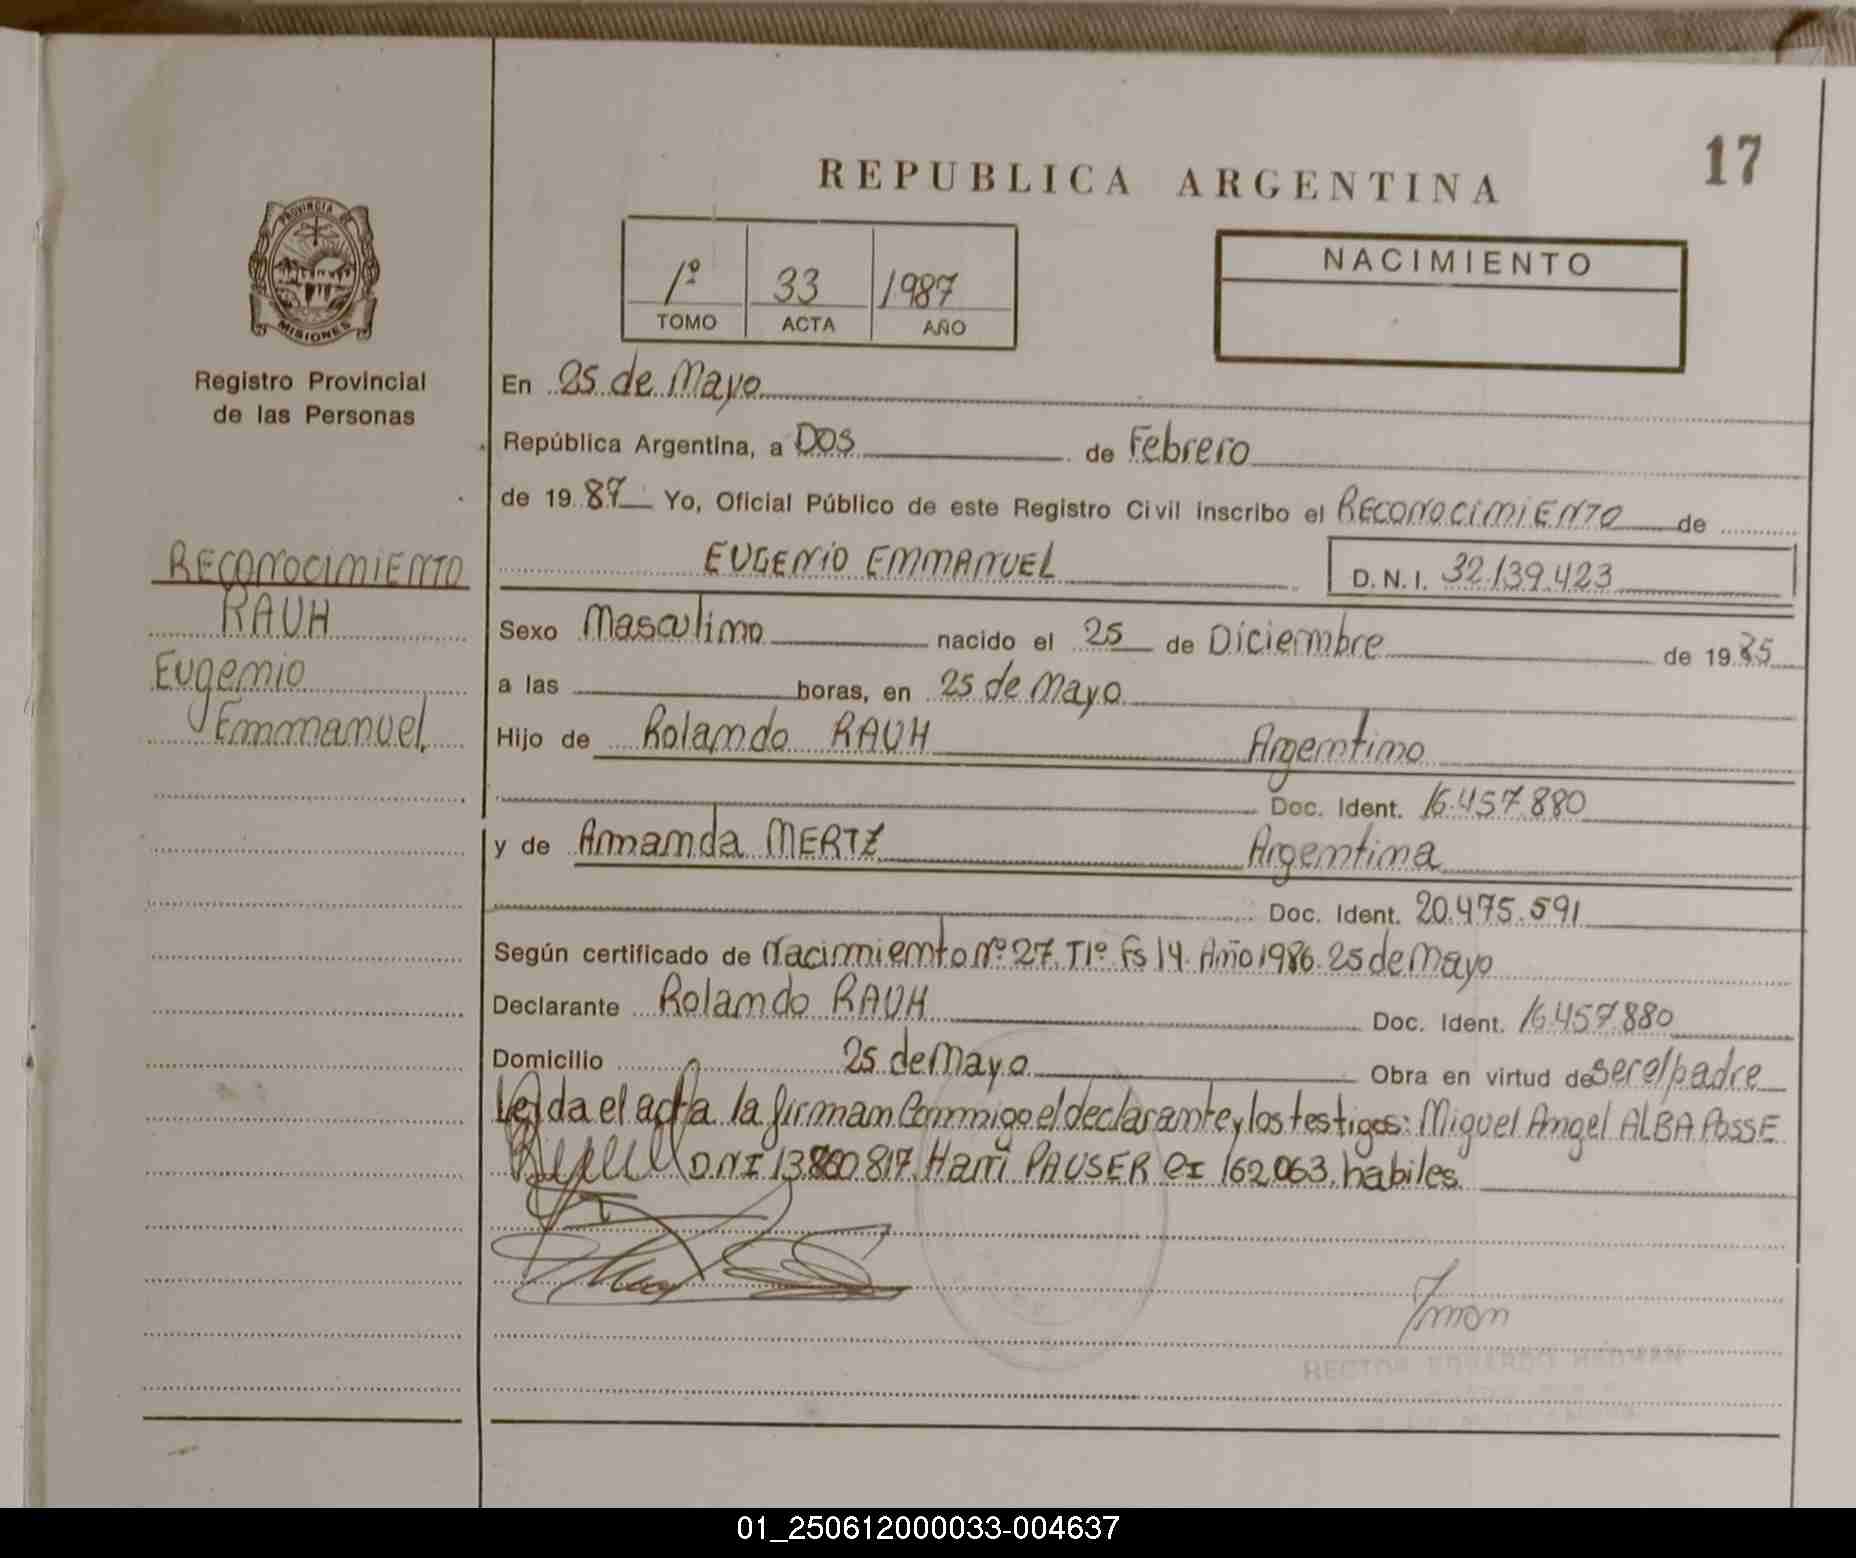 17
REPUBLICA ARGENTINA
PROVINCIA DE
MISIONES
Registro Provincial
de las Personas
1º 33 1987
TOMO ACTA AÑO
NACIMIENTO
RECONOCIMIENTO
RAUH
Eugenio
Emmanuel.
En 25 de Mayo
República Argentina, a DOS de Febrero
de 19 87 Yo, Oficial Público de este Registro Civil inscribo el RECONOCIMIENTO de
EUGENIO EMMANUEL D.N.I. 32.139.423
Sexo Masculino nacido el 25 de Diciembre de 19 85
a las horas, en 25 de Mayo
Hijo de Rolando RAUH Argentino
Doc. Ident. 16.457.880
y de Amanda MERTZ Argentina
Doc. Ident. 20.475.591
Según certificado de Nacimiento Nº 27. T1º Fs 14. Año 1986. 25 de Mayo
Declarante Rolando RAUH Doc. Ident. 16.457.880
Domicilio 25 de Mayo Obra en virtud de ser el padre
Leida el acta la firman Conmigo el declarante y los testigos: Miguel Angel ALBA POSSE
D.N.I 13.860.817. Harri PAUSER CI 162.063. habiles.
HECTOR EDUARDO
01_250612000033-004637